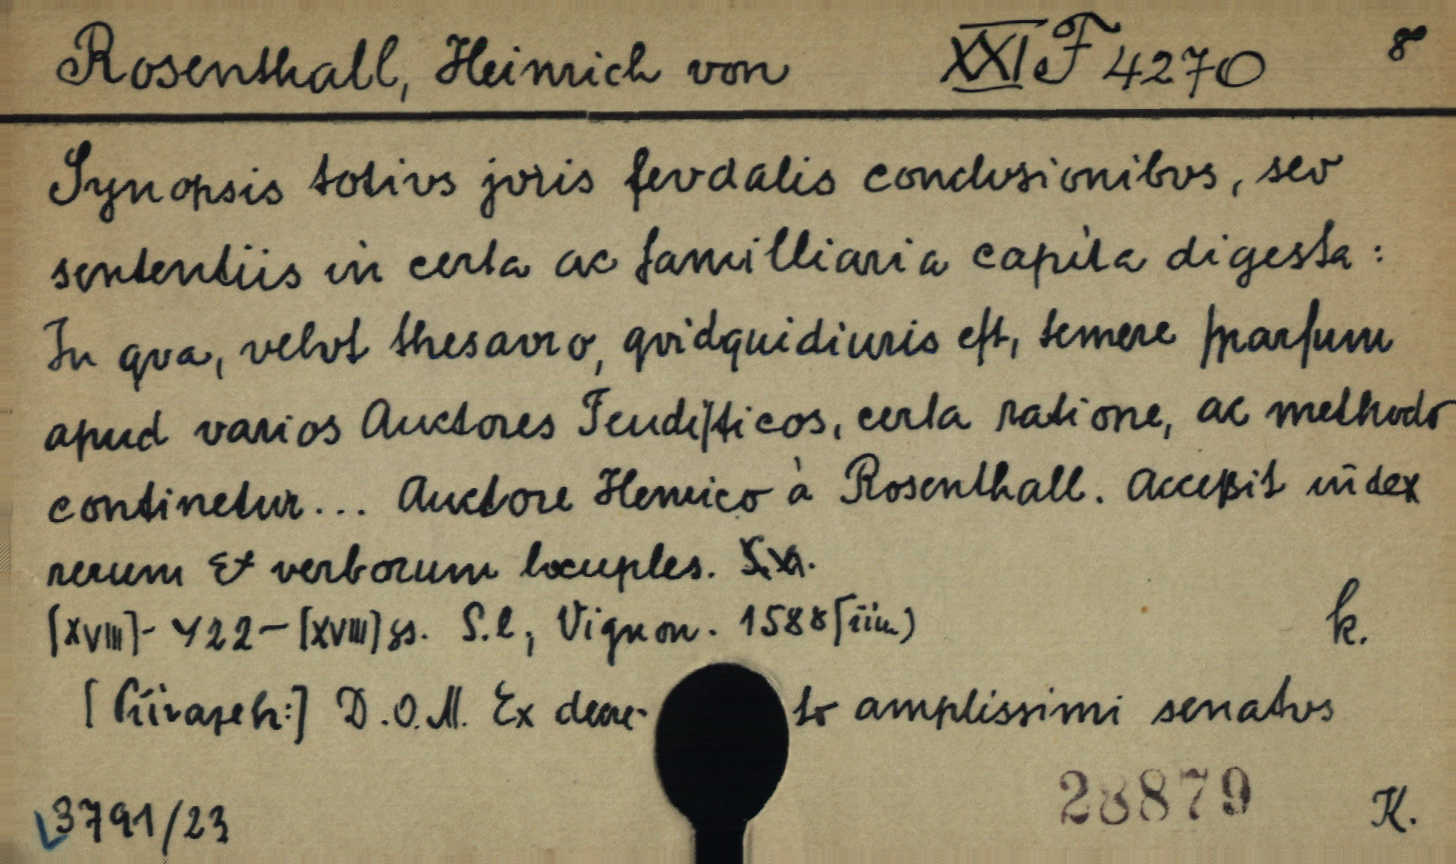 Rosenthall, Heinrich von XXI F 4270 8
Synopsis totivs jvris fevdalis conclvsionibvs, sev
sententiis in certa ac familliaria capita digesta:
In qva, velvt thesavro, qvidquidiuris eſt, temere ſparſum
apud varios Auctores Feudiſticos, certa ratione, ac methodo
continetur... Auctore Henrico à Rosenthall. Acceßit index
rerum Et verborum locuples.
[XVIII]- 422-[XVIII] gs. S.l, Vignon. 1588 k.
D.O.M. Ex decre-to amplissimi senatvs
3791/23 28879 K.